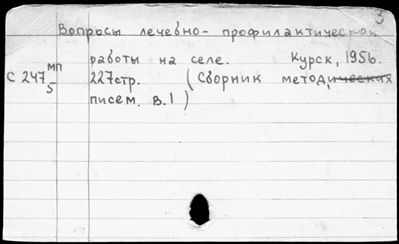 3
Вопросы лечебно- профилактической
работы на селе. Курск, 1956.
С 247 мп 5 227стр. (Сборник метод.
писем. в.1)